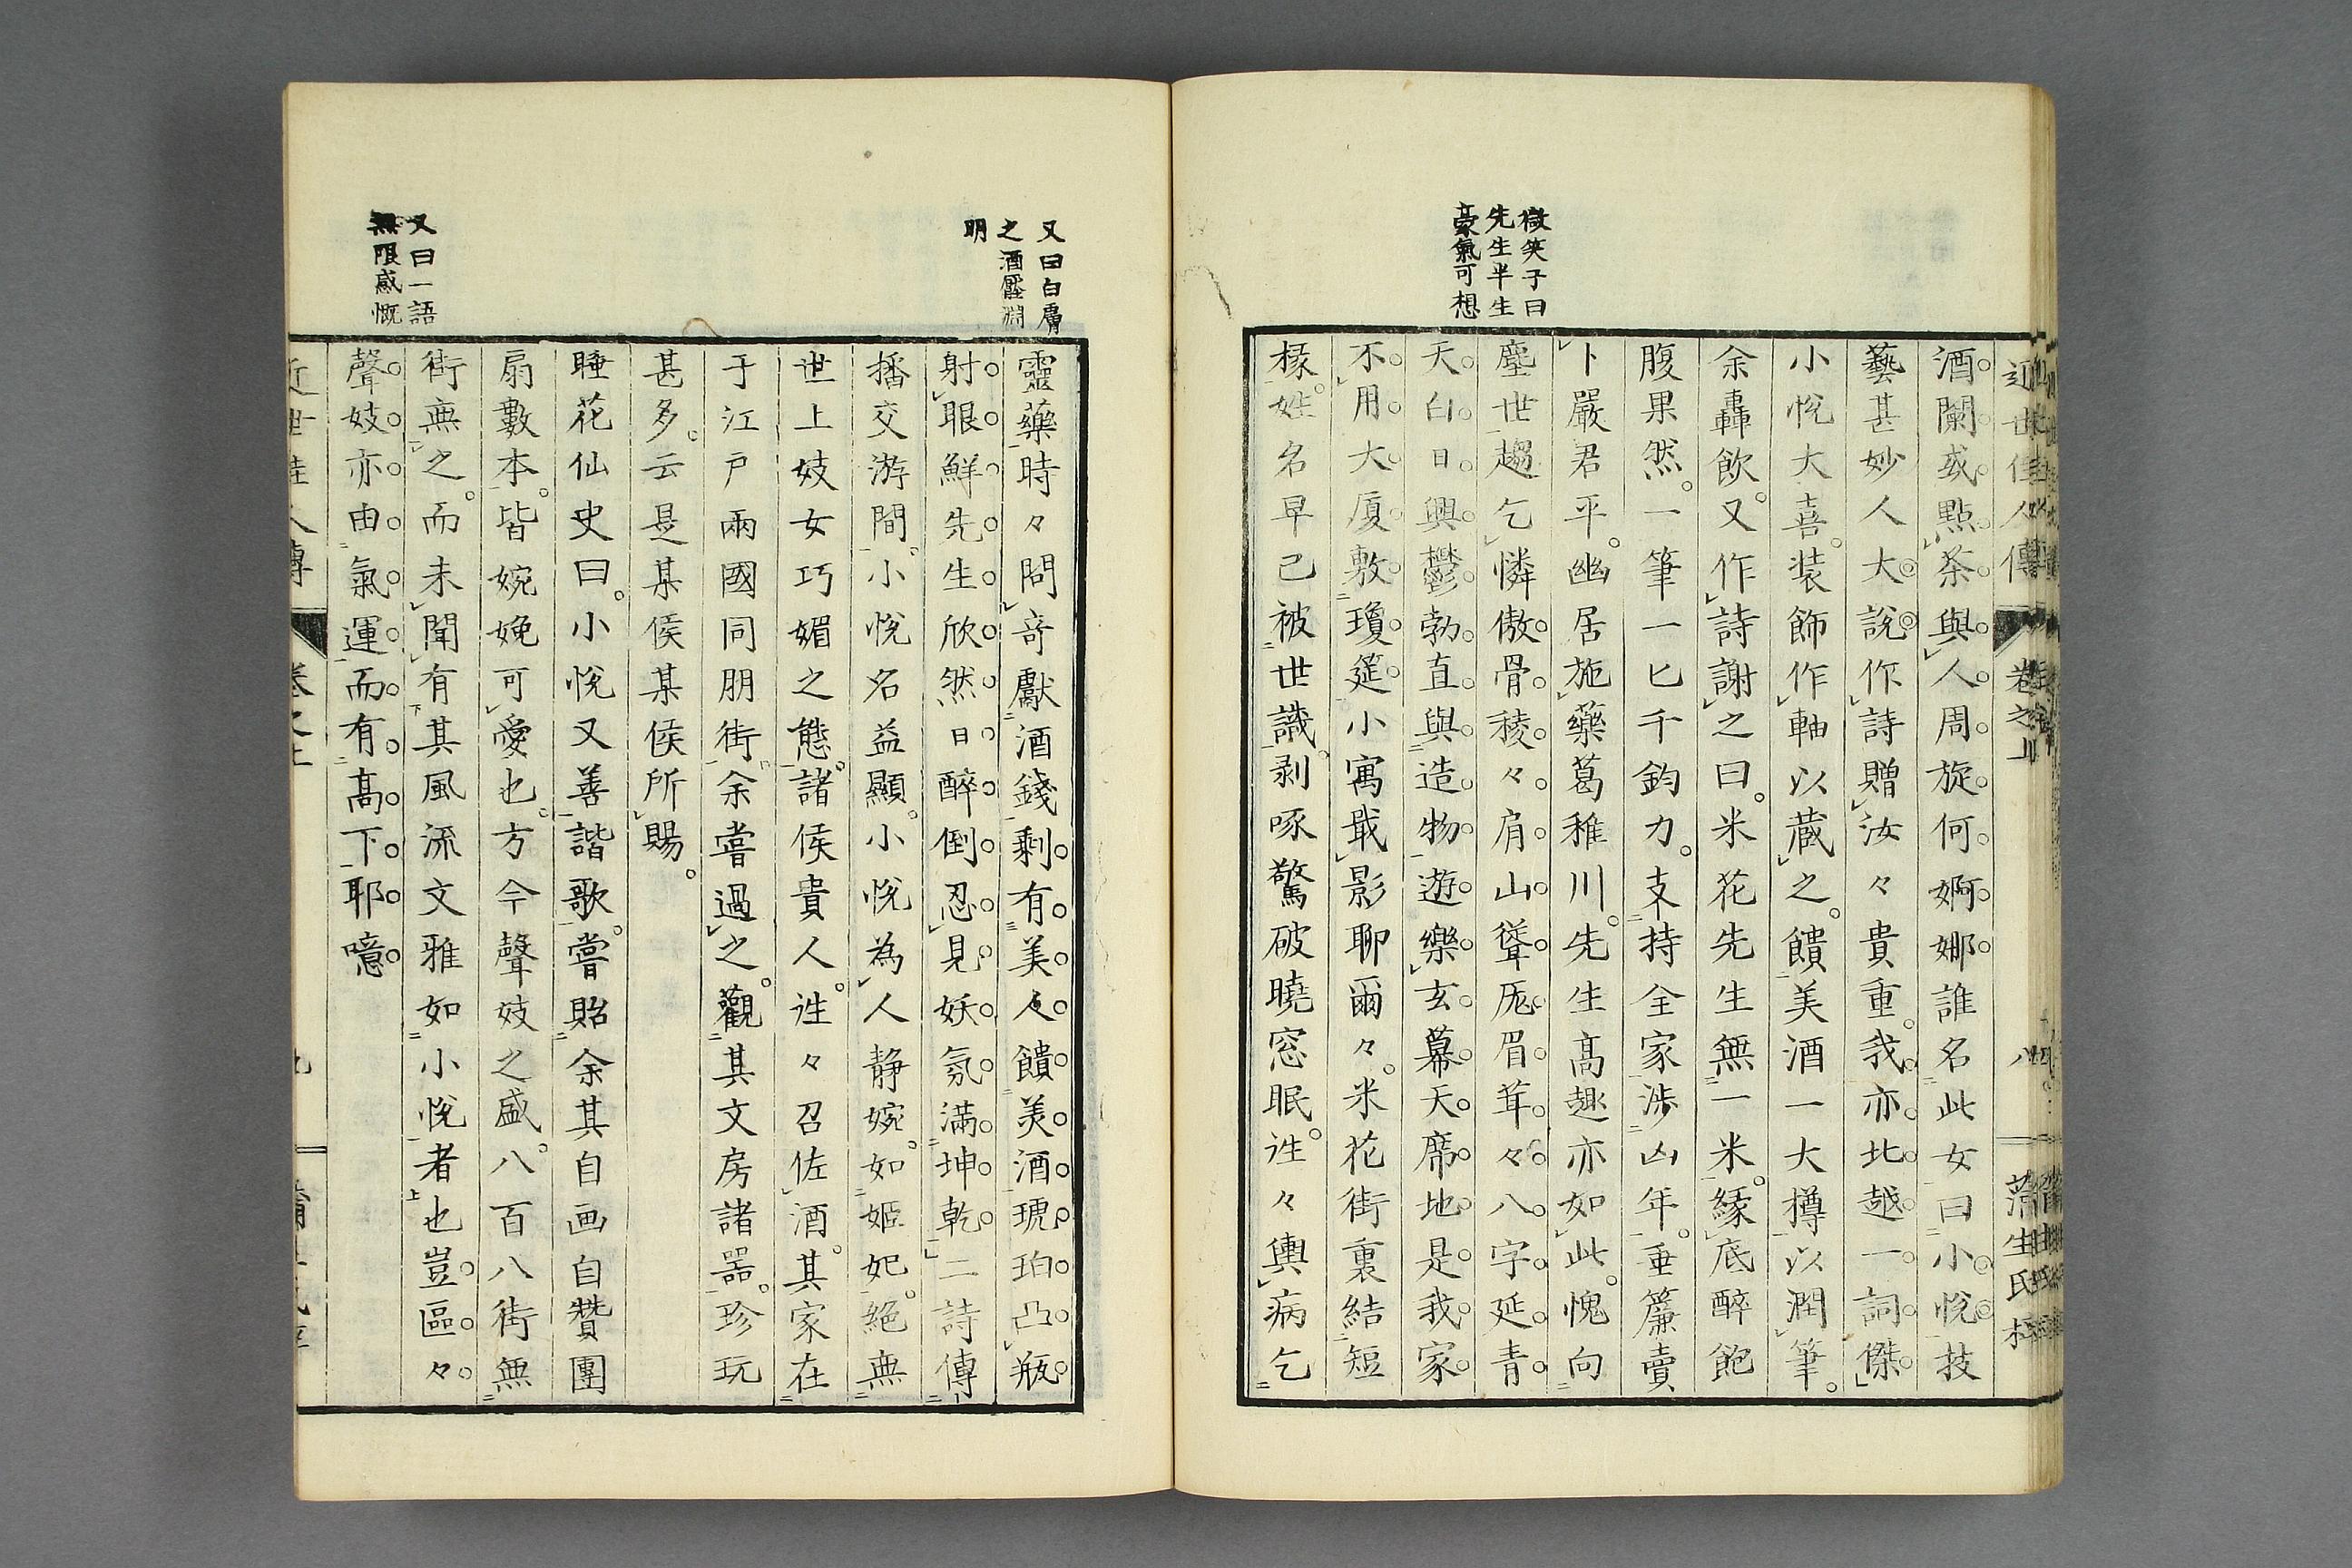 微笑子曰
先生半生
豪氣可想
近世佳人傳
卷之上
酒闌或點茶與人周旋何婀娜誰名此女曰小悅技
藝甚妙人大說作詩贈汝々貴重我亦北越一詞傑
小悅大喜裝飾作軸以藏之饋美酒一大樽以潤筆
余轟飲又作詩謝之曰米花先生無一米緣底醉飽
腹果然一筆一匕千鈞力支持全家涉凶年垂簾賣
卜嚴君平幽居施藥葛稚川先生高趣亦如此愧向
塵世趨乞憐傲骨稜々肩山聳厖眉茸々八字延青
天白日興鬱勃直與造物遊樂玄幕天席地是我家
不用大廈敷瓊筵小寓戢影聊爾々米花街裏結短
椽姓名早已被世識剥啄驚破曉窓眠往々輿病乞
又曰白膚
之酒靨淵
明
靈藥時々問奇獻酒錢剩有美人饋美酒琥珀凸瓶
射眼鮮先生欣然日醉倒忍見妖氛滿坤乾二詩傳
播交游間小悅名益顯小悅為人静婉如姬妃絕無
世上妓女巧媚之態諸侯貴人往々召佐酒其家在
于江戶兩國同朋街余嘗過之觀其文房諸器珍玩
甚多云是某侯某侯所賜
睡花仙史曰小悅又善諧歌嘗貽余其自画自贊團
扇數本皆婉娩可愛也方今聲妓之盛八百八街無
街無之而未聞有其風流文雅如小悅者也豈區々
聲妓亦由氣運而有高下耶噫
又曰一語
無限感慨
近世佳人傳
卷之上